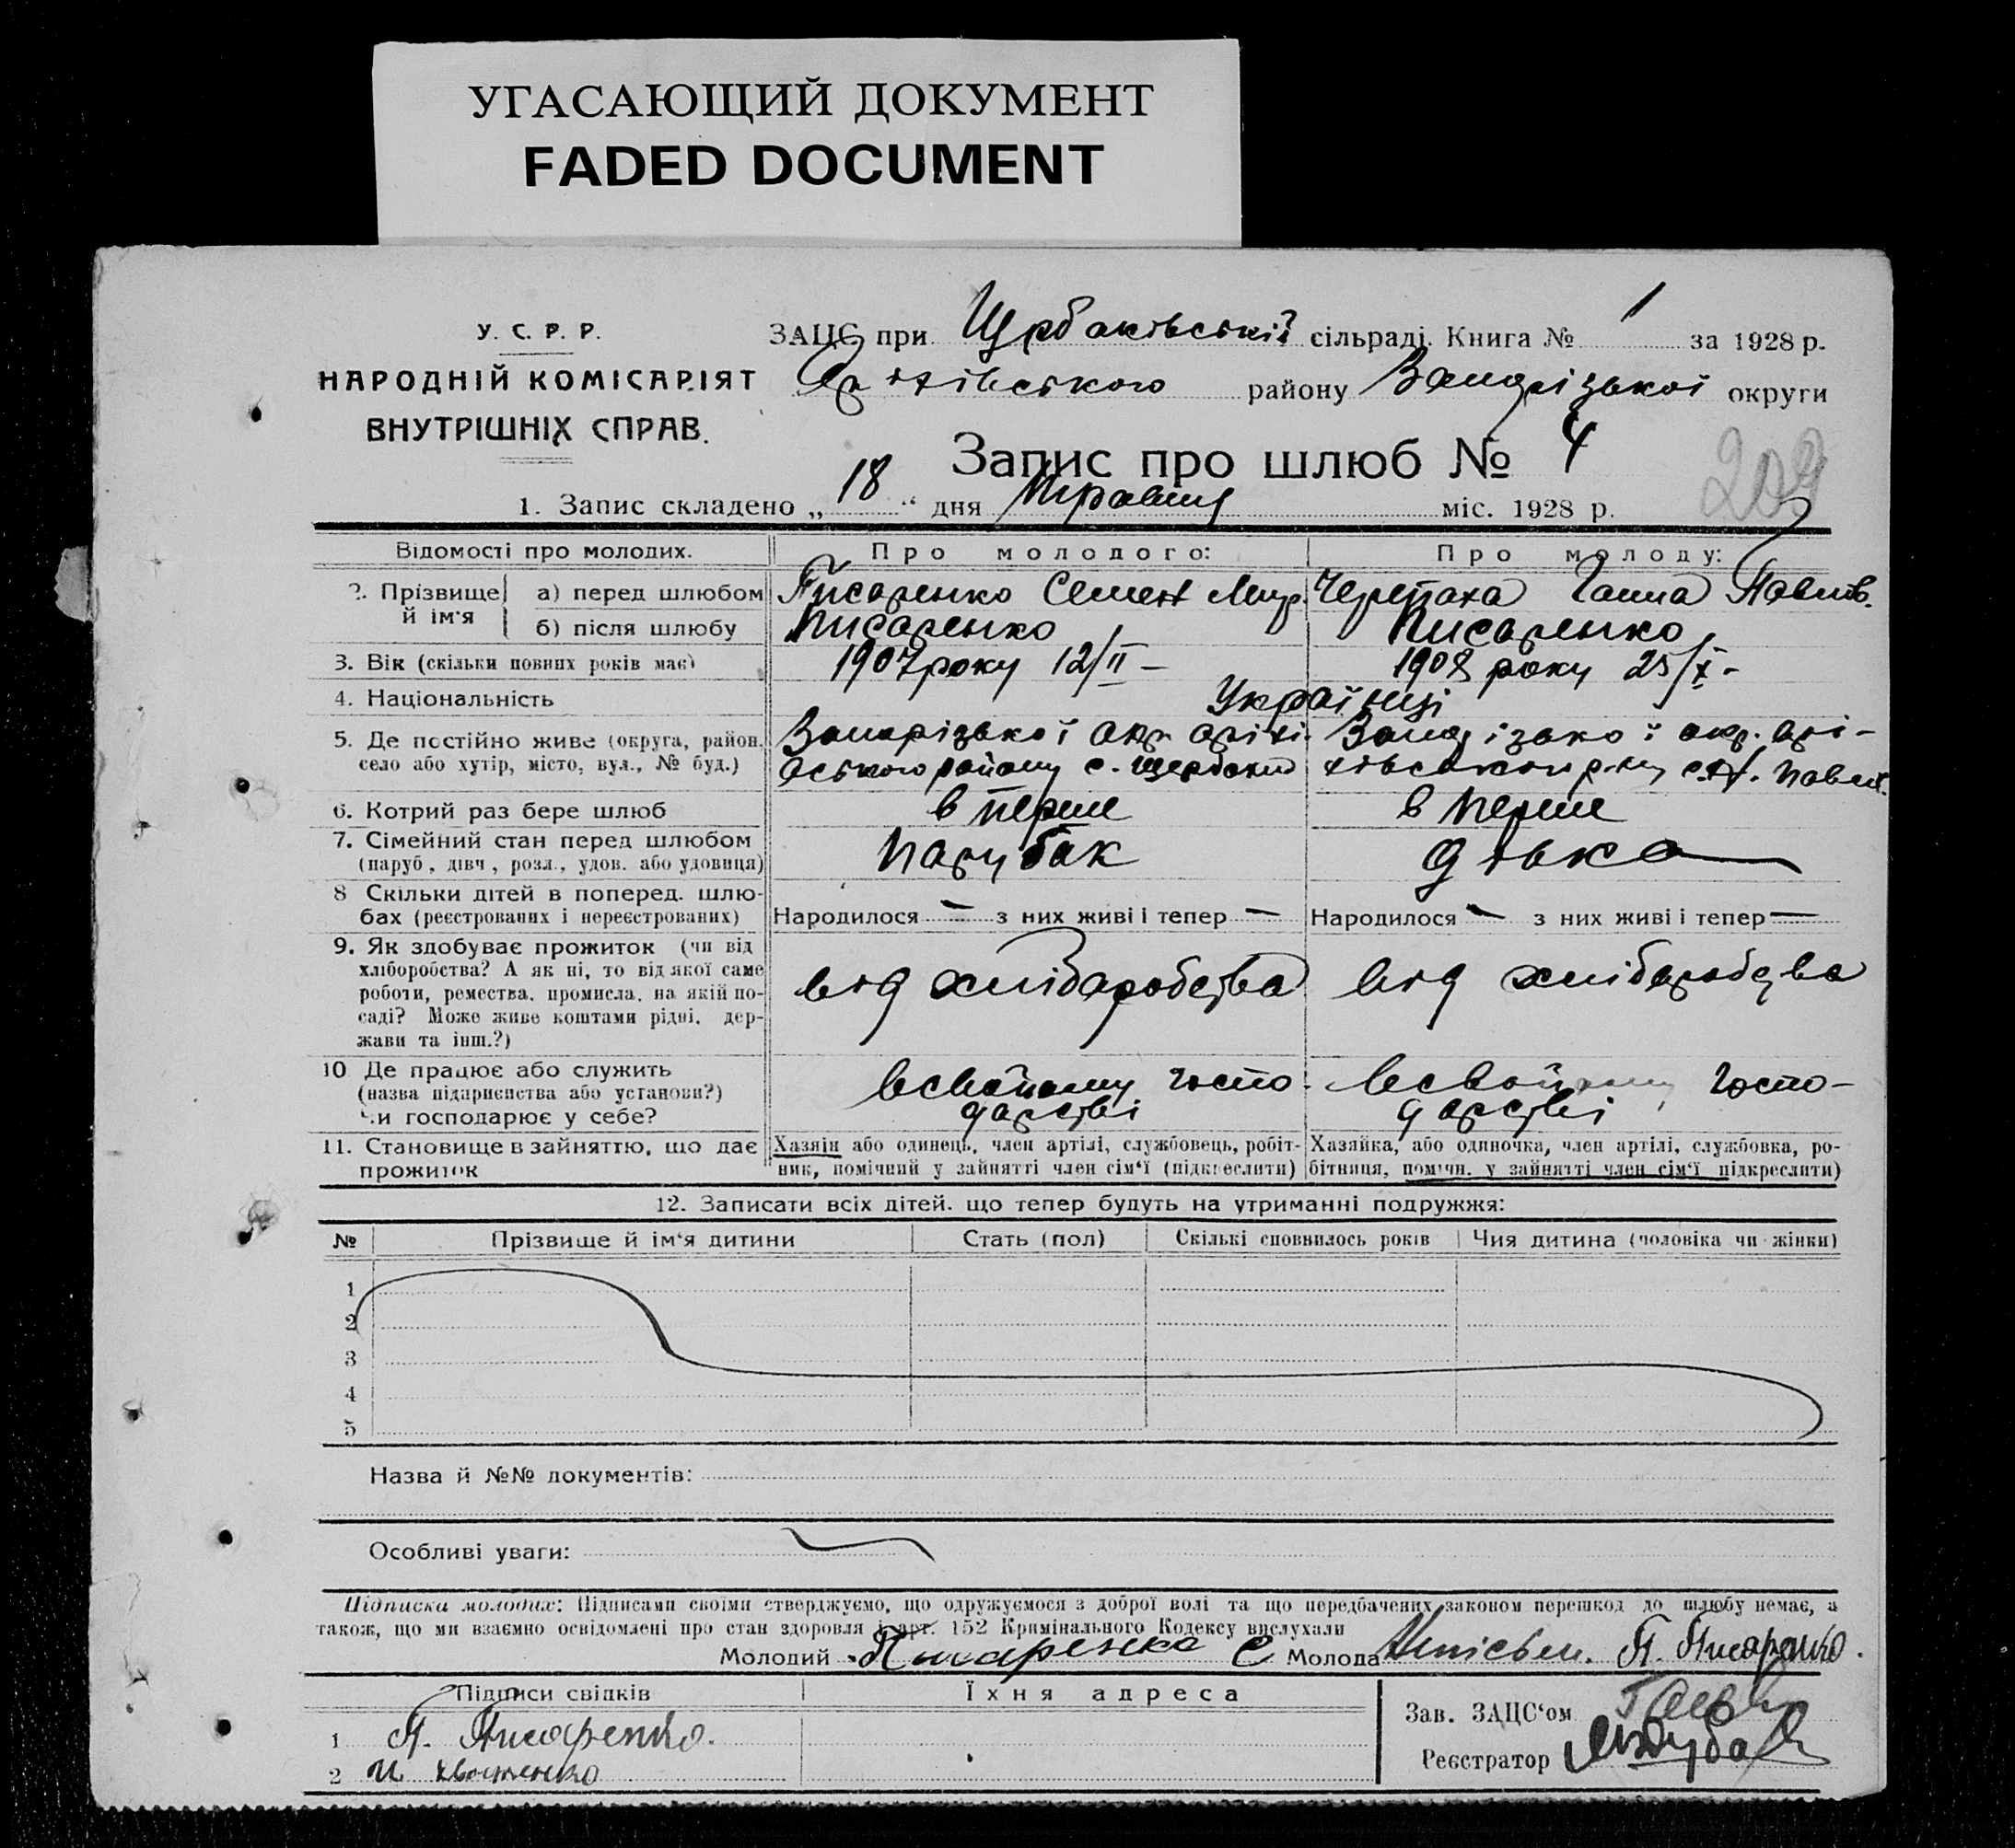 УГАСАЮЩИЙ ДОКУМЕНТ
FADED DOCUMENT
У. С. Р. Р.
НАРОДНІЙ КОМІСАРІЯТ
ВНУТРІШНІХ СПРАВ.
ЗАЦС при Щрбаківській сільраді. Книга № 1 за 1928 р.
району Запорізької округи
Запис про шлюб № 4
209
1. Запис складено „ 18 “ дня Травня міс. 1928 р.
Відомості про молодих. Про молодого: Про молоду:
2. Прізвище й ім'я а) перед шлюбом Писаренко Семен Черепаха Ганна Павлів.
б) після шлюбу Писаренко Писаренко
3. Вік (скільки повних років має) 1907 року 12/II – 1908 року 25/X –
4. Національність Українці
5. Де постійно живе (округа, район, Запорізької окр. оріхі- Запорізької окр. орі-
село або хутір, місто, вул., № буд.) вського району с. Щербаки хівського р-ну с. Н. Павлів.
6. Котрий раз бере шлюб в перше в перше
7. Сімейний стан перед шлюбом парубак дівка
(паруб., дівч., розл., удов. або удовиця)
8 Скільки дітей в поперед. шлю-
бах (реєстрованих і нереєстрованих) Народилося — з них живі і тепер — Народилося — з них живі і тепер —
9. Як здобуває прожиток (чи від
хліборобства? А як ні, то від якої саме
роботи, ремества, промисла, на якій по- від хліборобства від хліборобства
саді? Може живе коштами рідні, дер-
жави та інш.?)
10 Де працює або служить всвойому госпо- всвойому госпо-
(назва підприємства або установи?) дарстві дарстві
Чи господарює у себе?
11. Становище в зайняттю, що дає Хазяїн або одинець, член артілі, службовець, робіт- Хазяйка, або одиночка, член артілі, службовка, ро-
прожиток ник, помічний у зайнятті член сім'ї (підкреслити) бітниця, помічн. у зайнятті член сім'ї підкреслити)
12. Записати всіх дітей. що тепер будуть на утриманні подружжя:
№ Прізвище й ім'я дитини Стать (пол) Скількі сповнилось років Чия дитина (чоловіка чи жінки)
1
2
3
4
5
Назва й №№ документів:
Особливі уваги:
Підписка молодих: Підписами своїми стверджуємо, що одружуємося з доброї волі та що передбачених законом перешкод до шлюбу немає, а
також, що ми взаємно освідомлені про стан здоровля і арт. 152 Кримінального Кодексу вислухали
Молодий Писаренко С Молода Неписьм. П. Писаренко.
Підписи свідків Їхня адреса
Зав. ЗАЦС'ом
1 П. Писаренко.
Реєстратор
2